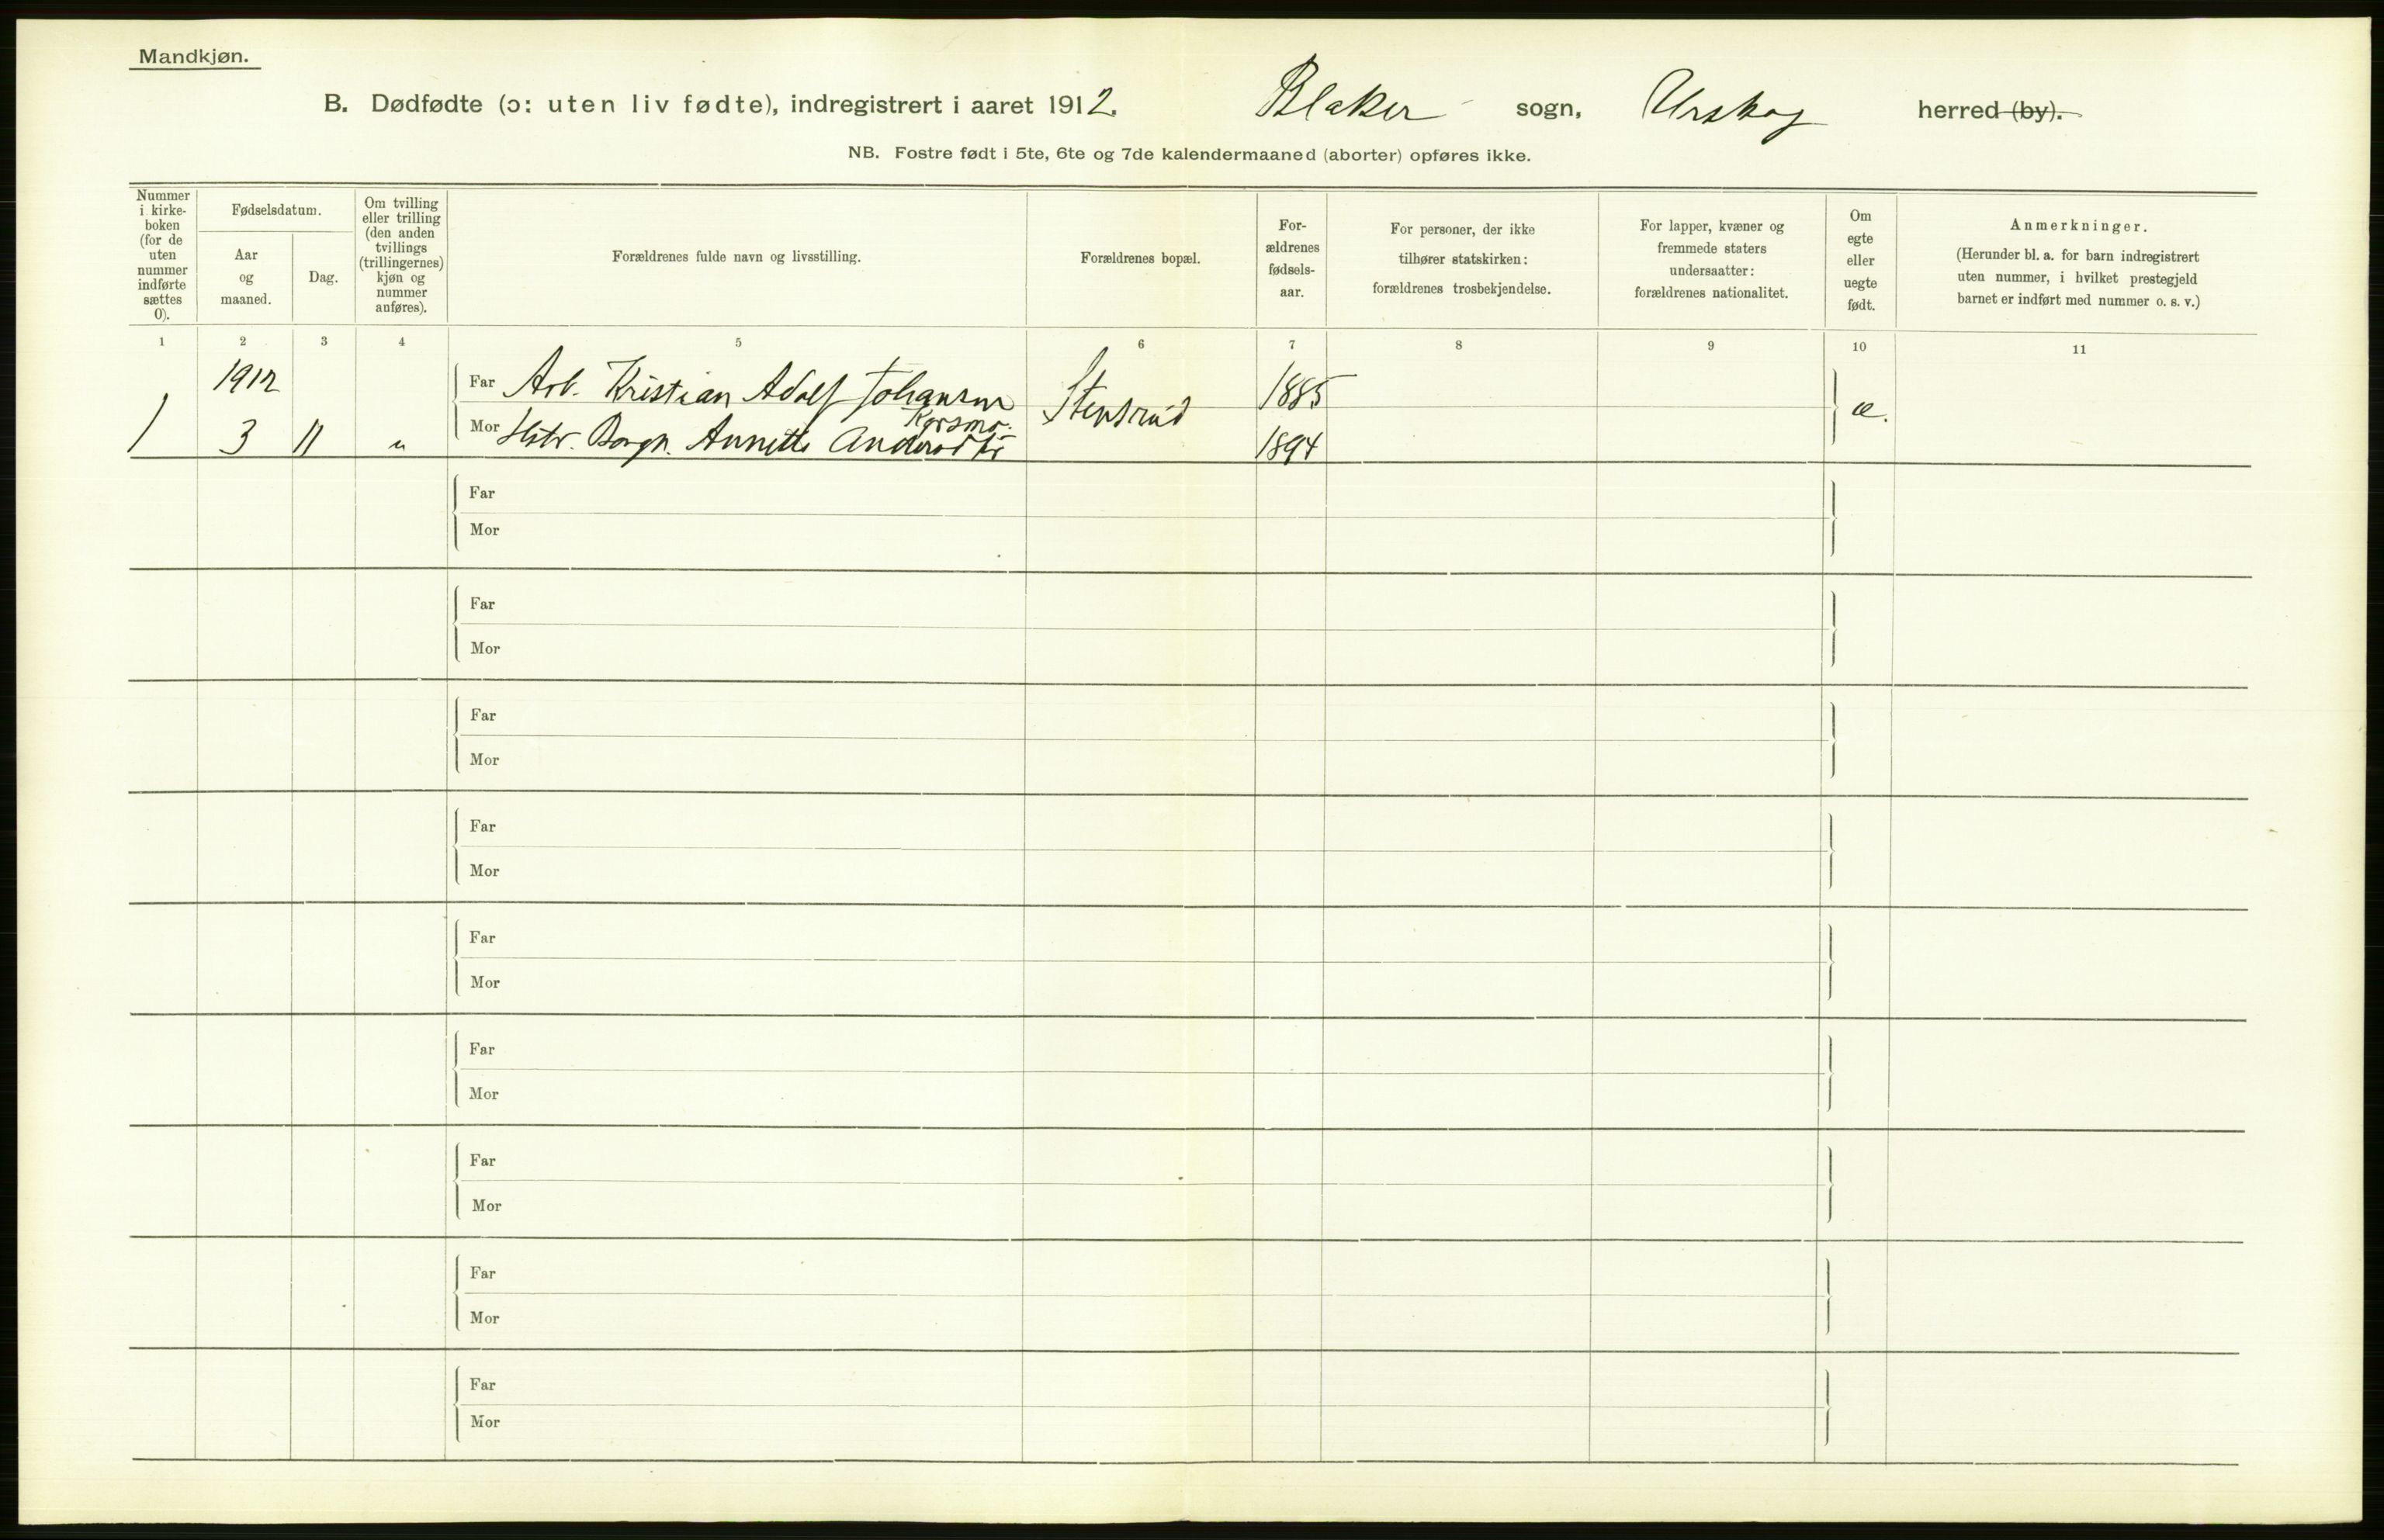 Mandkjøn.
B. Dødfødte (ɔ: uten liv fødte), indregistrert i aaret 1912. Blaker sogn, Urskog herred (by).
NB. Fostre født i 5te, 6te og 7de kalendermaaned (aborter) opføres ikke.
Nummer
i kirke-
boken
(for de
uten
nummer
indførte
sættes
0).
Fødselsdatum.
Aar
og
maaned.
Dag.
Om tvilling
eller trilling
(den anden
tvillings
(trillingernes)
kjøn og
nummer
anføres).
Forældrenes fulde navn og livsstilling.
Forældrenes bopæl.
For-
ældrenes
fødsels-
aar.
For personer, der ikke
tilhører statskirken:
forældrenes trosbekjendelse.
For lapper, kvæner og
fremmede staters
undersaatter:
forældrenes nationalitet.
Om
egte
eller
uegte
født.
Anmerkninger.
(Herunder bl. a. for barn indregistrert
uten nummer, i hvilket prestegjeld
barnet er indført med nummer o. s. v.)
1 2 3 4 5 6 7 8 9 10 11
1912
Far Arb. Kristian Adolf Johansen Stensrud 1885
æ.
1 3 11 " Mor Hstr. Borgh. Annette 1894
Far
Mor
Far
Mor
Far
Mor
Far
Mor
Far
Mor
Far
Mor
Far
Mor
Far
Mor
Far
Mor